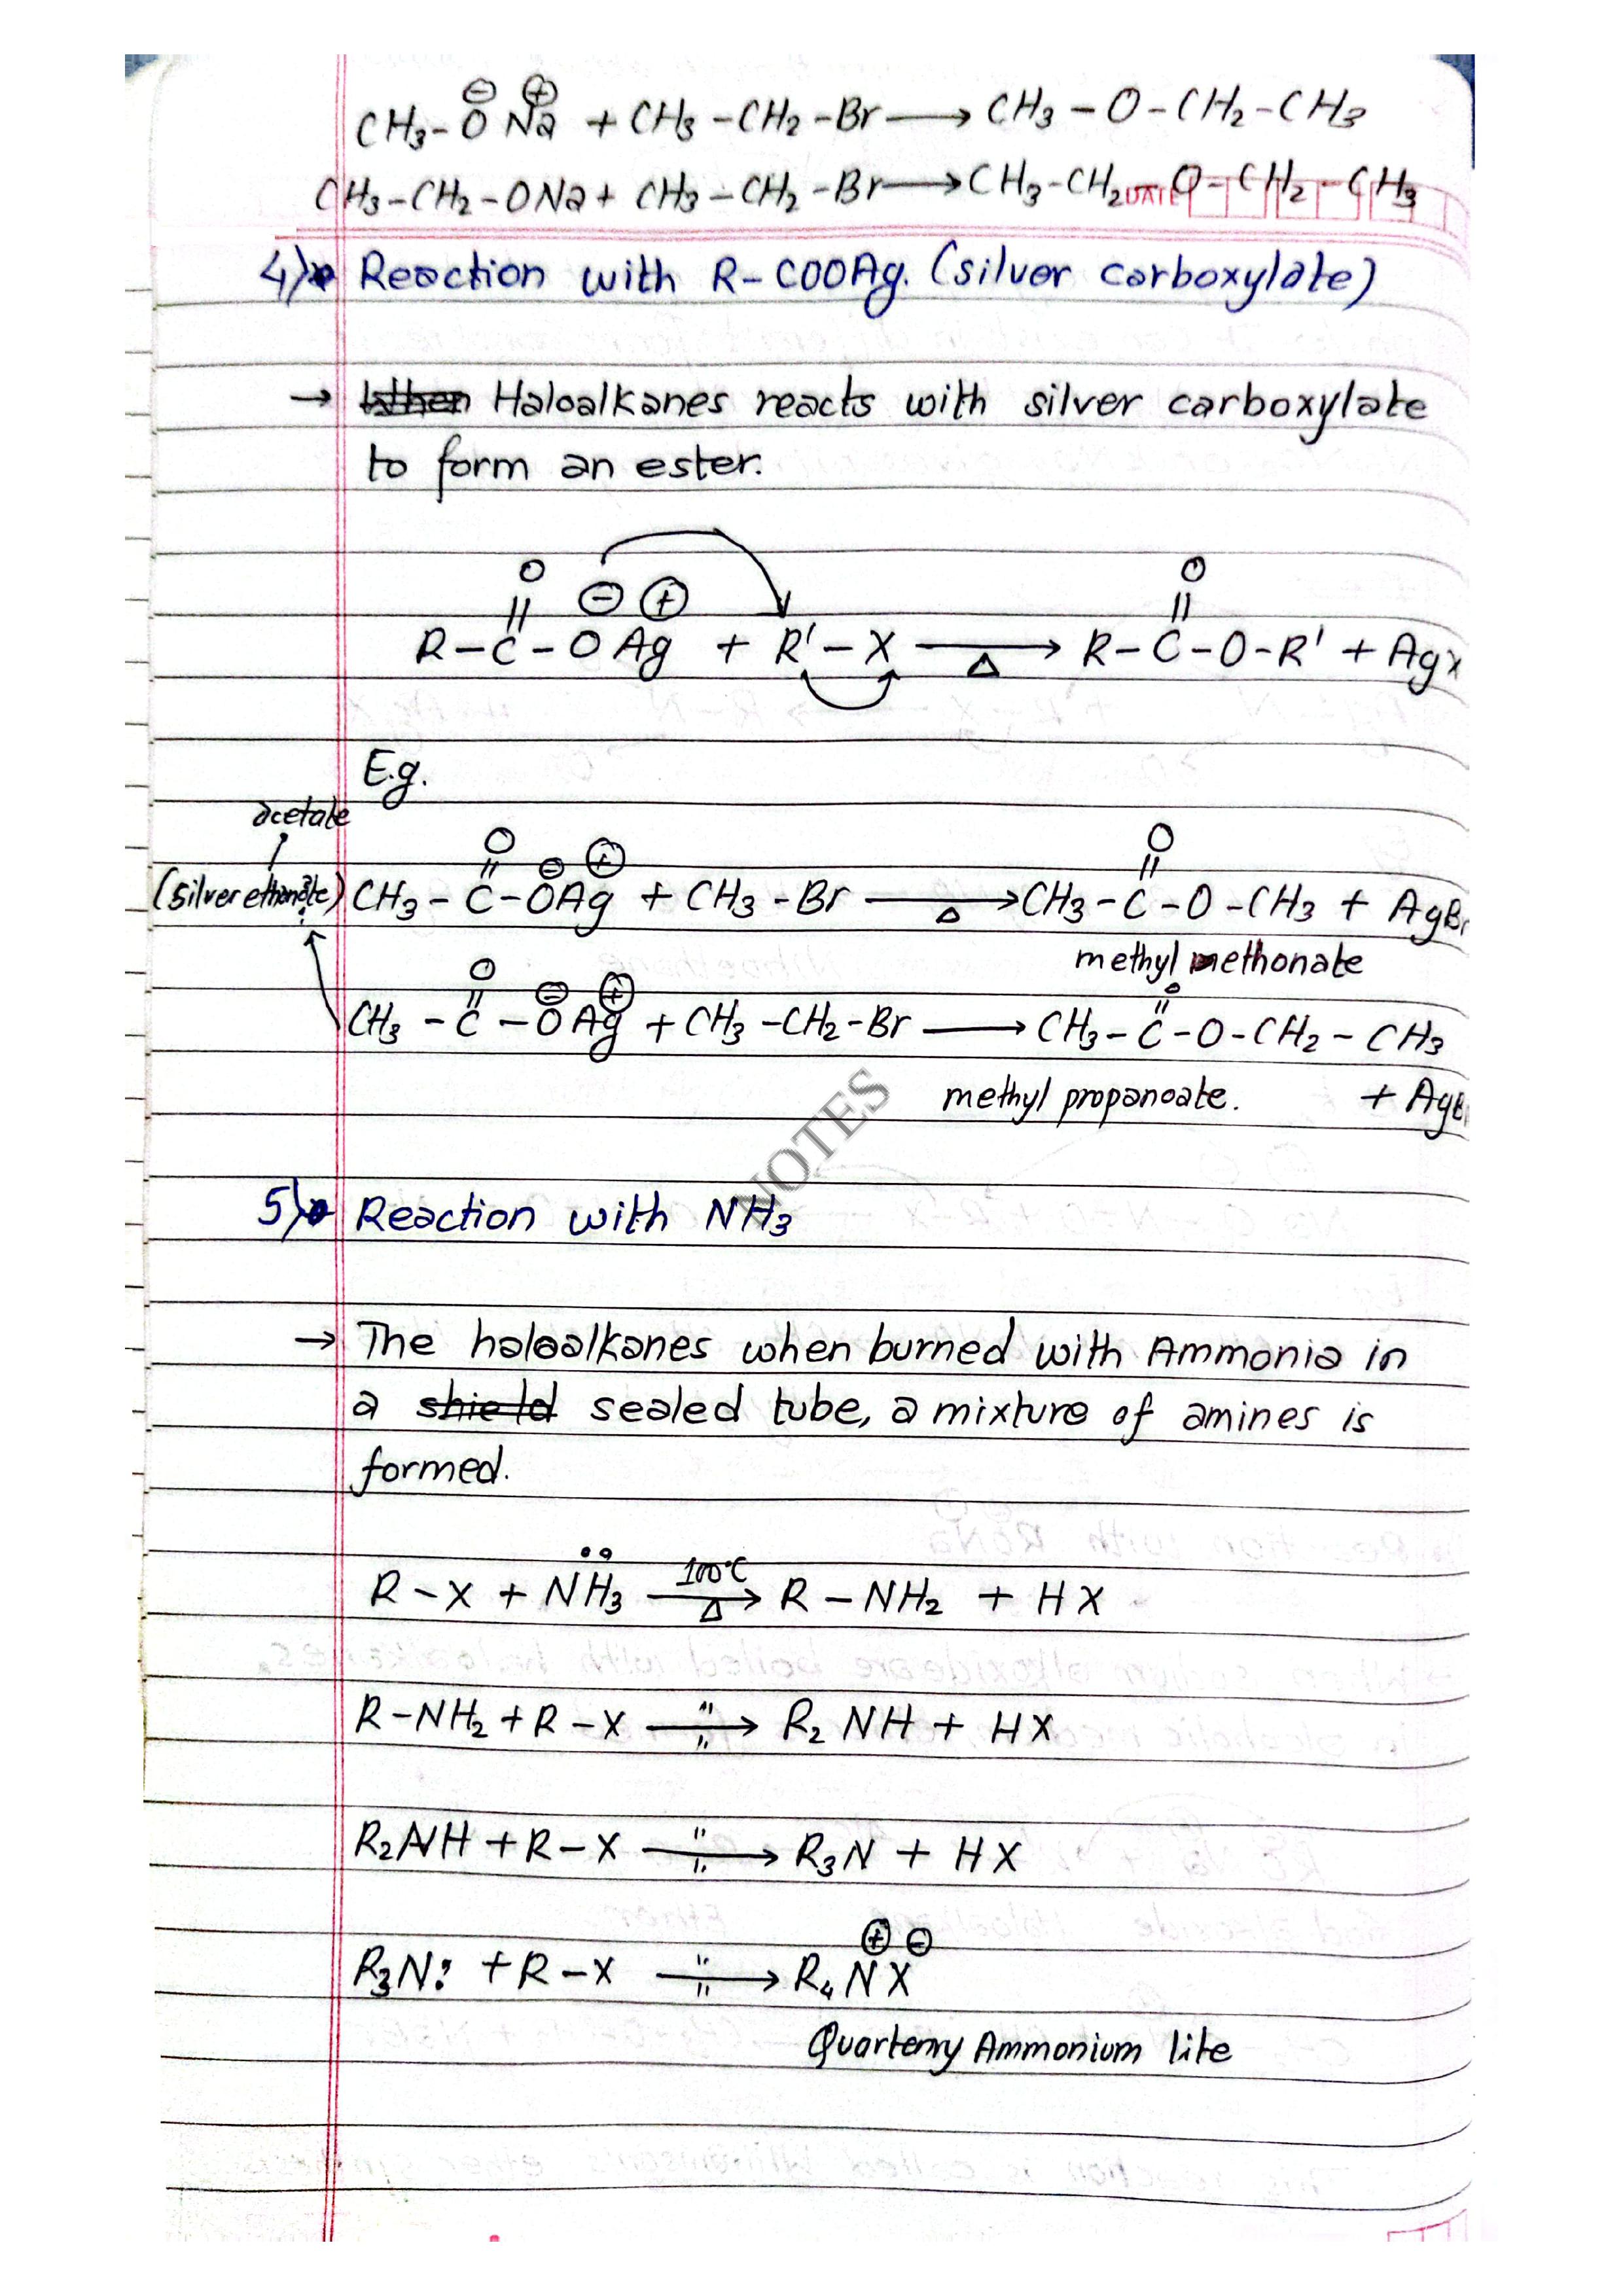 CH3-O⊖ Na⊕ + CH3-CH2-Br → CH3-O-CH2-CH3
CH3-CH2-ONa + CH3-CH2-Br → CH3-CH2-O-CH2-CH3
DATE
4) Reaction with R-COOAg. (silver carboxylate)
→ When Haloalkanes reacts with silver carboxylate
to form an ester.
O ⊖ ⊕ O
|| ||
R-C-O Ag + R'-X →Δ R-C-O-R' + Agx
E.g.
acetate
O ⊖ ⊕ O
|| ||
(silver ethanoate) CH3-C-OAg + CH3-Br →Δ CH3-C-O-CH3 + AgBr
methyl methonate
O ⊖ ⊕ O
|| ||
CH3-C-O Ag + CH3-CH2-Br → CH3-C-O-CH2-CH3
methyl propanoate. + AgBr
NOTES
5) Reaction with NH3
→ The haloalkanes when burned with Ammonia in
a shield sealed tube, a mixture of amines is
formed.
R-X + N̈H3 100°C →Δ R-NH2 + HX
R-NH2 + R-X "→" R2 NH + HX
R2NH + R-X "→" R3N + HX
R3N: + R-X "→" R4 N⊕ X⊖
Quarterny Ammonium lite